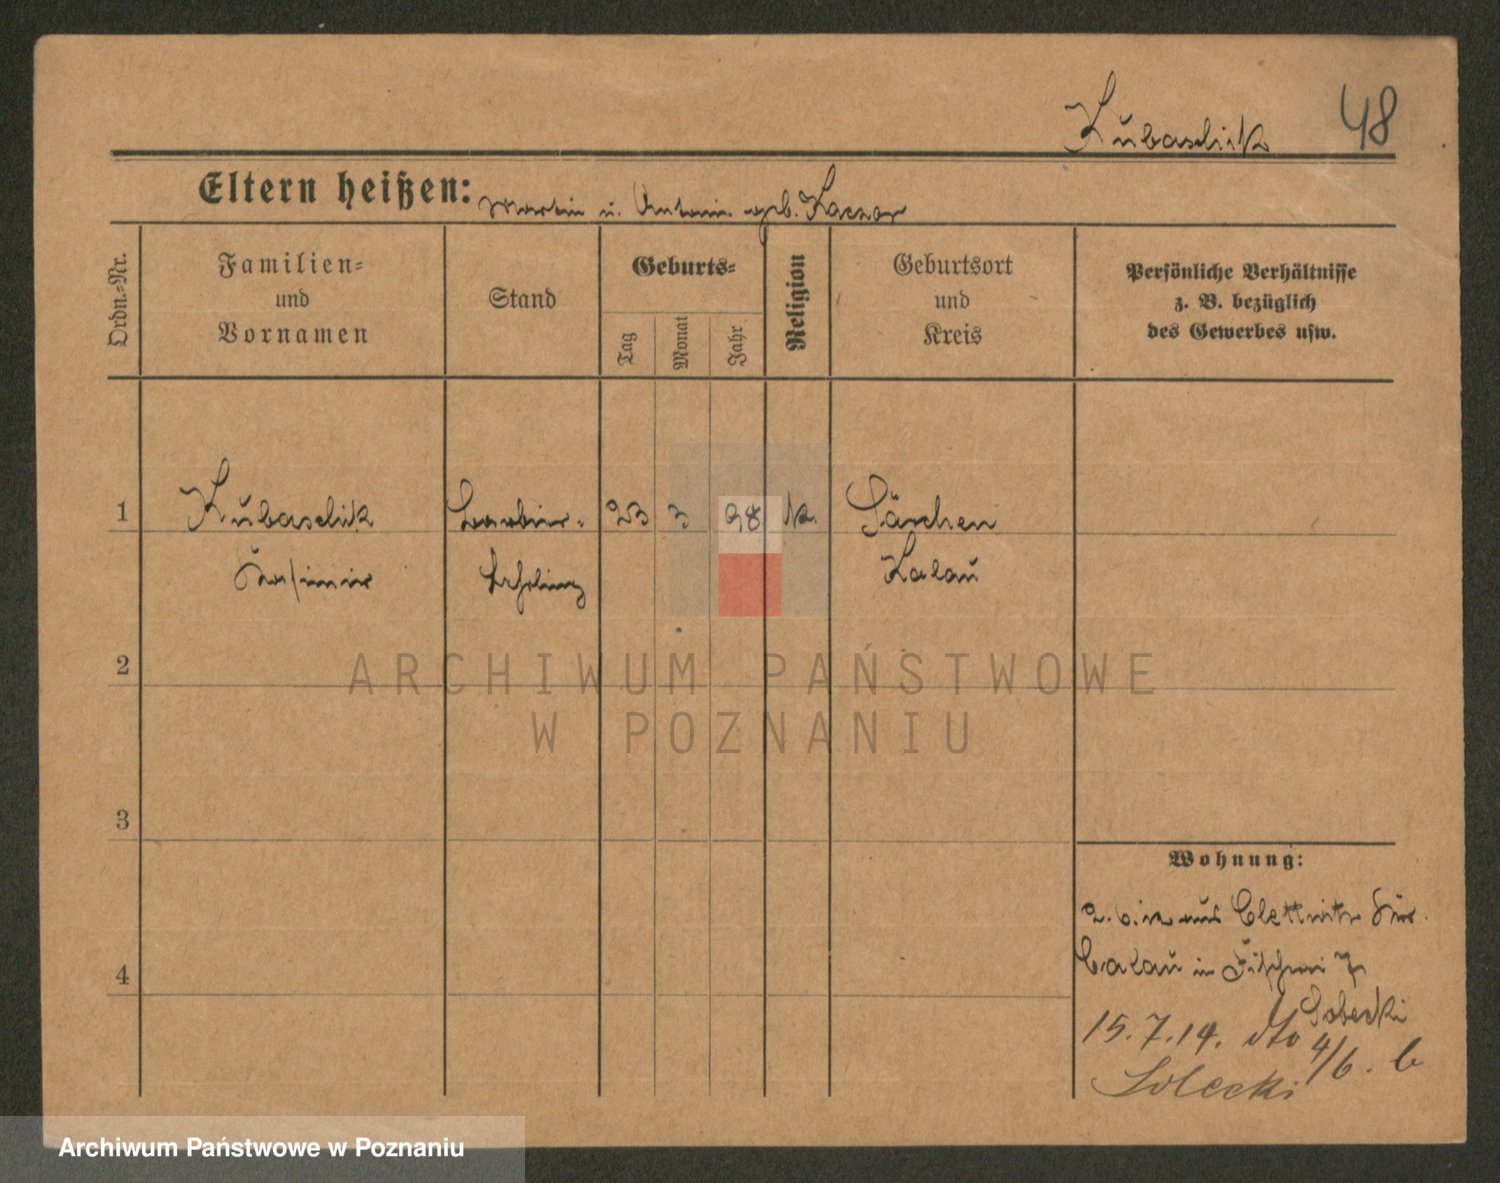 Kubaschik 48
Eltern heißen: Martin u. Antonie geb. Kaczor
Ordn.-Nr.
Familien-
und
Vornamen
Stand
Geburts-
Tag
Monat
Jahr
Religion
Geburtsort
und
Kreis
Persönliche Verhältnisse
z. B. bezüglich
des Gewerbes usw.
1 Kubaschik Barbier- 23 3 98 k. Särchen
Kasimir Lehrling Kalau
2
ARCHIWUM PAŃSTWOWE
W POZNANIU
3
Wohnung:
aus Clettwitz Kr.
4 Calau in Fischerei 7
Sobecki
15.7.14. dto 4/6. b
Solecki
Archiwum Państwowe w Poznaniu